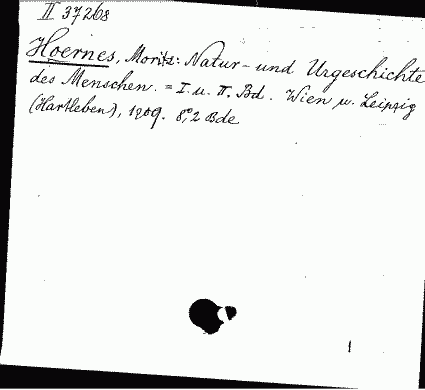 II 37268
Hoernes, Moritz: Natur- und Urgeschichte
des Menschen. = I. u. II. Bd. Wien u. Leipzig
(Hartleben), 1909. 8°, 2 Bde
1